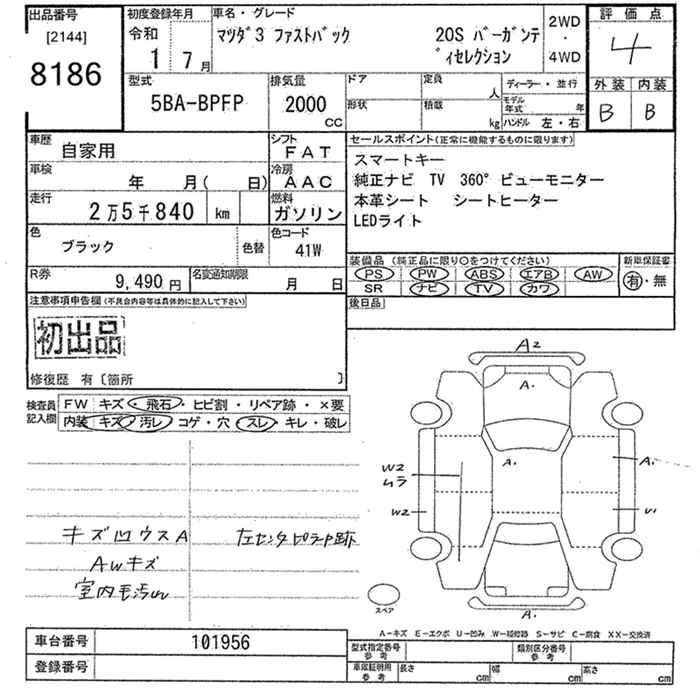 出品番号
[2144]
8186
初度登録年月
令和
1 7月
車名・グレード
マツダ3 ファストバック 20S バーガンデ
ィセレクション
2WD
・
4WD
評価点
4
外装 内装
B B
型式
5BA-BPFP
排気量
2000
CC
ドア
形状
定員
人
積載
kg
ディーラー・並行
モデル年式 年
ハンドル 左・右
車歴
自家用
シフト
FAT
車検
年 月( 日)
冷房
AAC
走行
2万5千840 km
燃料
ガソリン
色
ブラック
色替
色コード
41W
R券
9,490 円
名変通知期限
月 日
セールスポイント(正常に機能するものに限ります)
スマートキー
純正ナビ TV 360° ビューモニター
本革シート シートヒーター
LEDライト
装備品 (純正品に限り○をつけてください)
PS PW ABS エアB AW
SR ナビ TV カワ
新車保証書
有・無
後日品
注意事項申告欄(不具合内容等は具体的に記入して下さい)
初出品
修復歴 有〔箇所 〕
検査員記入欄
FW キズ・飛石・ヒビ割・リペア跡・×要
内装 キズ・汚レ・コゲ・穴・スレ・キレ・破レ
キズ凹ウスA 左センタピラーP跡
AWキズ
室内毛汚れ
A2
A.
A.
A.
W2
ムラ
W2
U1
A.
スペア
A－キズ E－エクボ U－凹み W－補修跡 S－サビ C－腐食 XX－交換済
車台番号
101956
登録番号
型式指定番号
参考
類別区分番号
参考
車庫証明用
参考
長さ cm
幅 cm
高さ cm